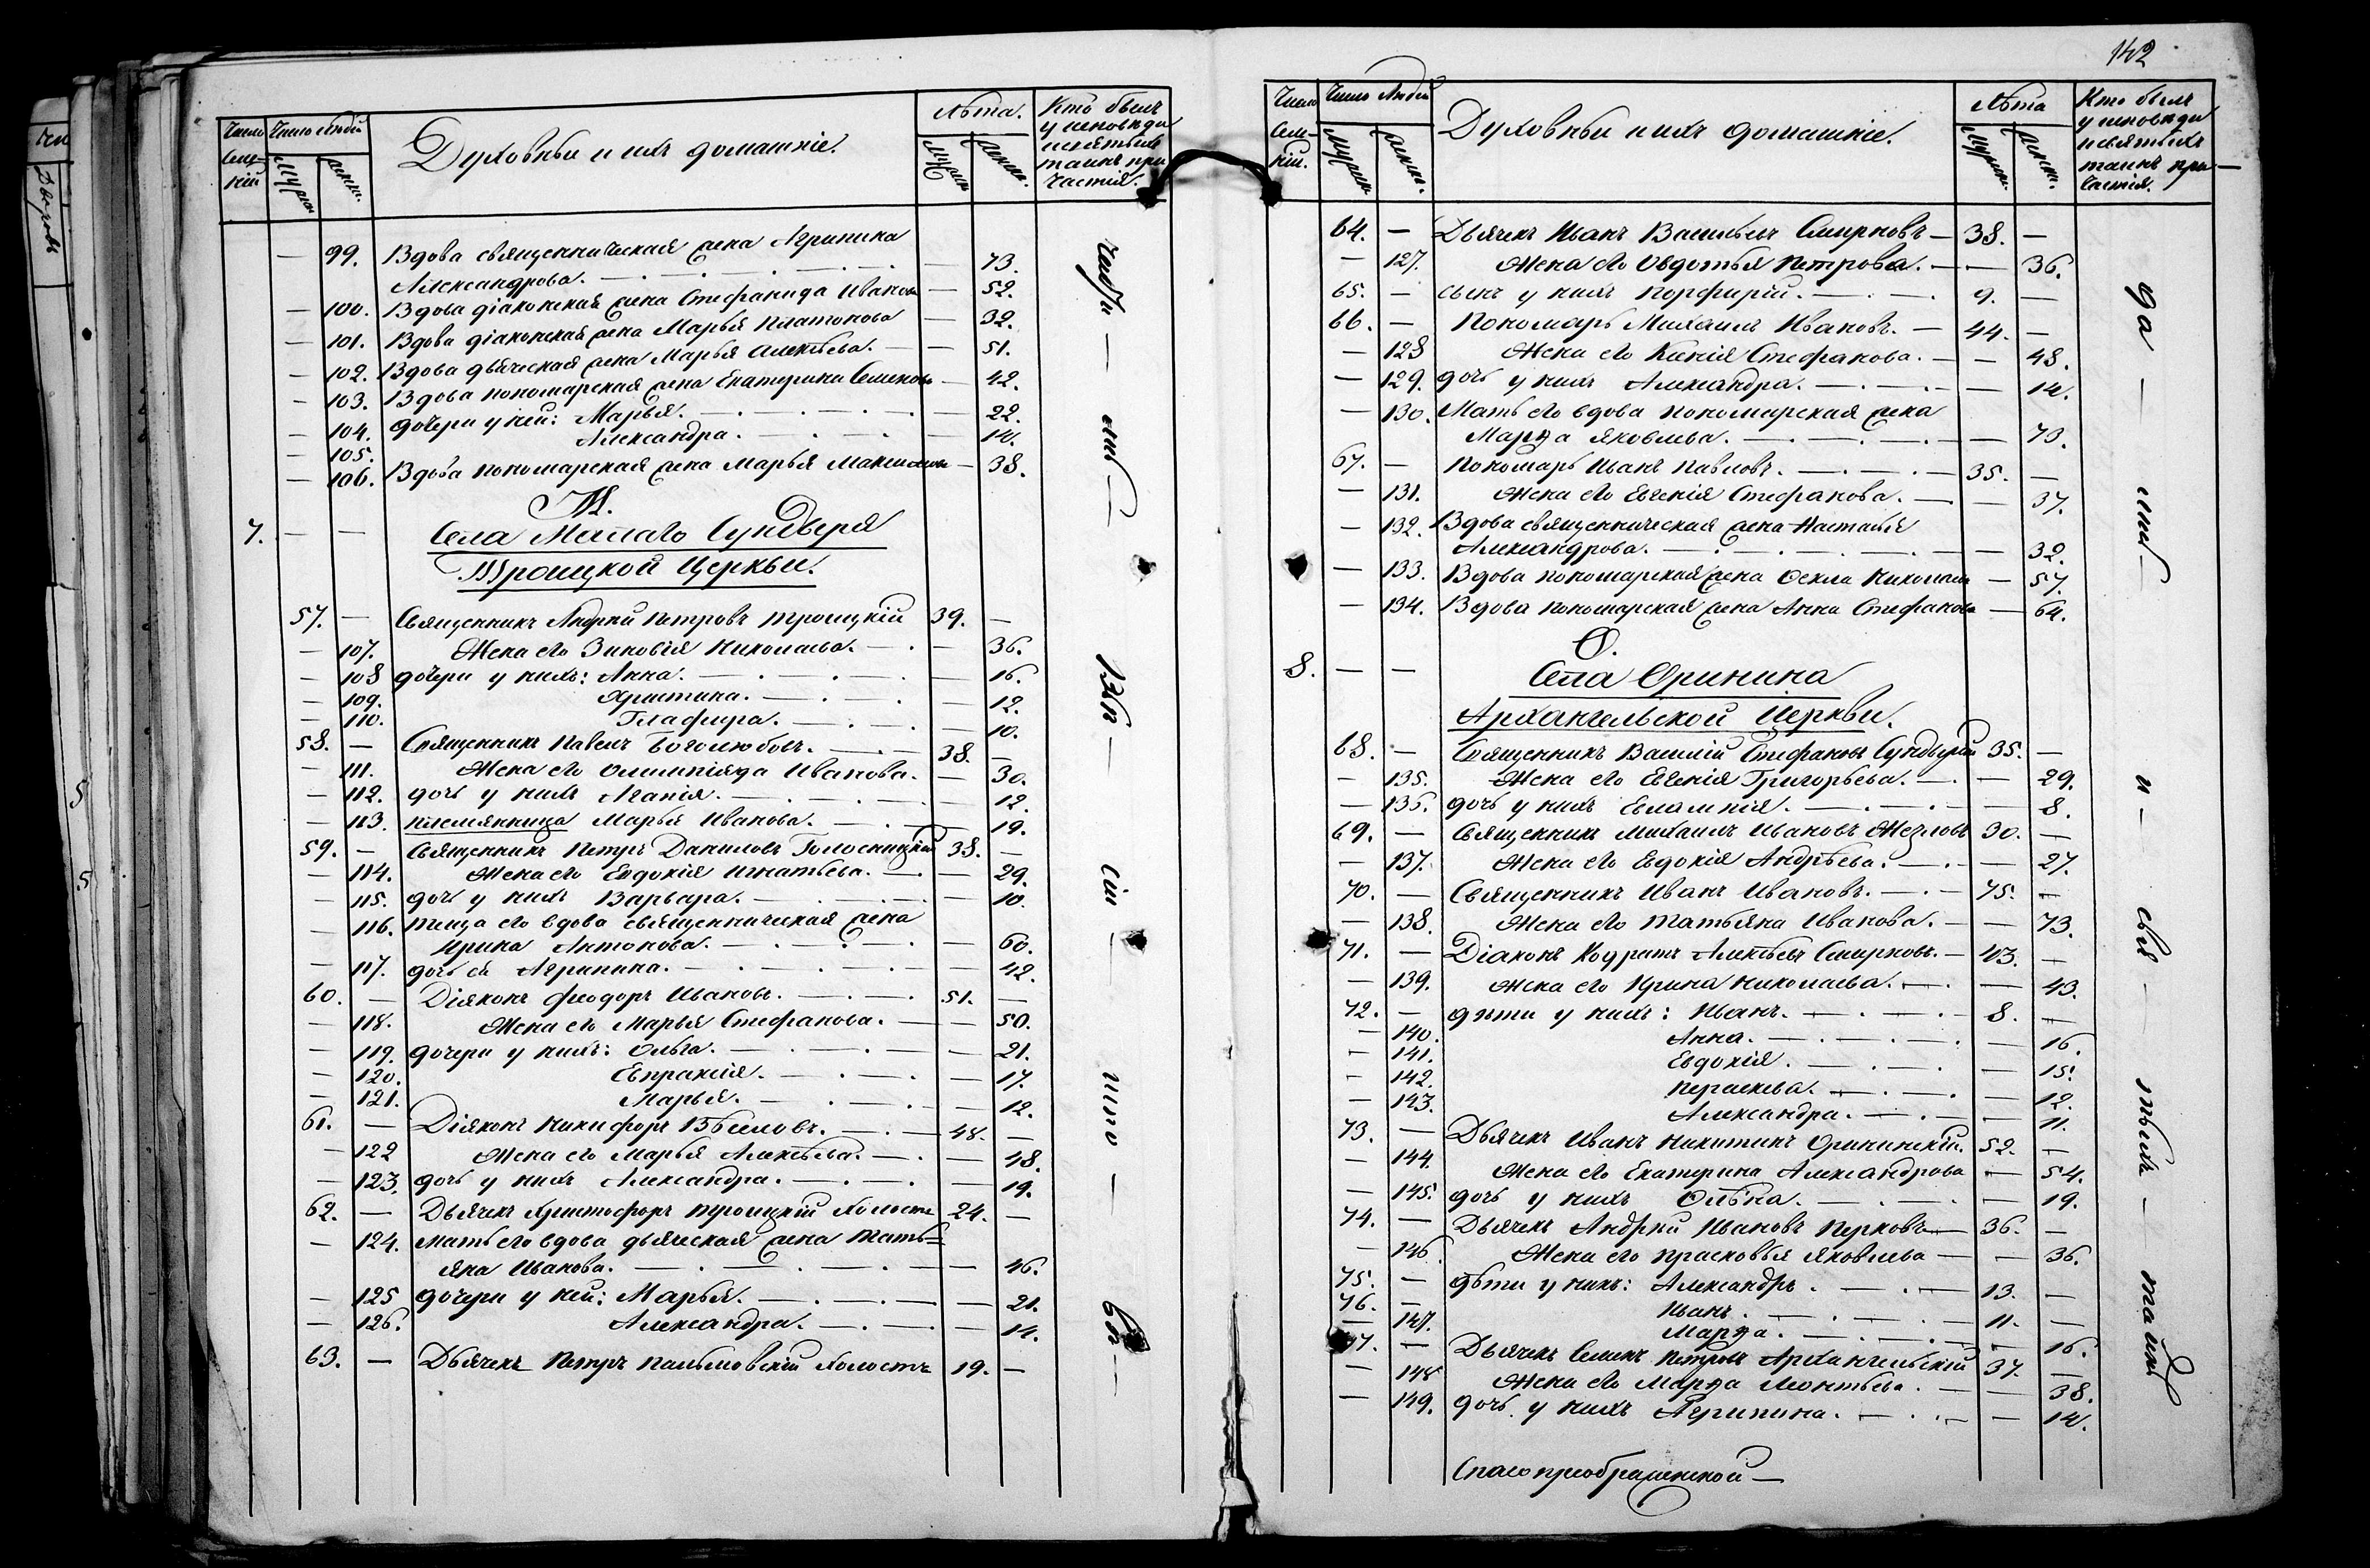 142
Число семействъ
Число людей
Мужеск.
Женск.
Духовныи и ихъ домашніе.
Лѣта.
Мужеск.
Женск.
Кто былъ
у исповѣди
и святыхъ
таинъ при
частія.
— 99. Вдова священническая жена Агрипина
Александрова. — 73.
— 100. Вдова діаконская жена Стефанида Иванова — 52.
— 101. Вдова діаконская жена Марья Платонова — 32.
— 102. Вдова дьяческая жена Марья Алексѣева. — 51.
— 103. Вдова пономарская жена Екатерина Семенова — 42.
— 104. дочери у ней: Марья. — 22.
— 105. Александра. — 14.
— 106. Вдова пономарская жена Марья Максимова — 38.
7. — —
Села Малаго Сундыря
Троицкой Церкви.
57. — Священникъ Андрей Петровъ Троицкій 39. —
— 107. Жена его Зиновія Николаева. — 36.
— 108 дочери у нихъ: Анна. — 16.
— 109. Христина. — 12.
— 110. Глафира. — 10.
58. — Священникъ Павелъ Боголюбовъ. — 38. —
— 111. Жена его Олимпіяда Иванова. — 30.
— 112. дочь у нихъ Агапія. — 12.
— 113. племянница Марья Иванова. — 19.
59. — Священникъ Петръ Даниловъ Голосницкій 38. —
— 114. Жена его Евдокія Игнатьева. — 29.
— 115. дочь у нихъ Варвара. — 10.
— 116. теща его вдова священническая жена
Ирина Антонова. — 60.
— 117. дочь ея Агрипина. — 42.
60. — Діяконъ Феодоръ Ивановъ. — 51. —
— 118. Жена его Марья Стефанова. — 50.
— 119. дочери у нихъ: Ольга. — 21.
— 120. Евпраксія. — 17.
— 121. Марья. — 12.
61. — Діяконъ Никифоръ Вѣселовъ. — 48. —
— 122 Жена его Марья Алексѣева. — 48.
— 123. дочь у нихъ Александра. — 19.
62. — Дьячекъ Христофоръ Троицкій холостъ 24. —
— 124. мать его вдова дьяческая жена Тать=
яна Иванова. — 46.
— 125 дочери у ней: Марья. — 21.
— 126. Александра. — 14.
63. — Дьячекъ Петръ Пальмовскій холостъ 19. —
Число семействъ
Число людей
Мужеск.
Женск.
Духовныи и ихъ домашніе.
Лѣта
Мужеск.
Женск.
Кто былъ
у исповѣди
и святыхъ
таинъ при—
частія.
64. — Дьячекъ Иванъ Васильевъ Смирновъ — 38. —
— 127. Жена его Овдотья Петрова. — 36.
65. — сынъ у нихъ Порфирій. — 9. —
66. — Пономарь Михаилъ Ивановъ. — 44. —
— 128 Жена его Ксенія Стефанова. — 48.
— 129. дочь у нихъ Александра. — 14.
— 130. Мать его вдова пономарская жена
Марѳа Яковлева. — 73.
67. — Пономарь Иванъ Павловъ. — 35. —
— 131. Жена его Евгенія Стефанова. — 37.
— 132. Вдова священническая жена Наталья
Александрова. — 32.
— 133. Вдова пономарская жена Ѳекла Николаева — 57.
— 134. Вдова пономарская жена Анна Стефанова — 64.
8. — —
Села Оринина
Архангельской Церкви.
68. — Священникъ Василій Стефановъ Сундырскій 35. —
— 135. Жена его Евгенія Григорьева. — 29.
— 136. дочь у нихъ Евлампія. — 8.
69. — Священникъ Михаилъ Ивановъ Жезловъ 30. —
— 137. Жена его Евдокія Андрѣева. — 27.
70. — Священникъ Иванъ Ивановъ. — 75. —
— 138. Жена его Татьяна Иванова. — 73.
71. — Діаконъ Кодратъ Алексѣевъ Смирновъ. — 43. —
— 139. Жена его Ирина Николаева. — 43.
72. — дѣти у нихъ: Иванъ. — 8. —
— 140. Анна. — 16.
— 141. Евдокія. — 15.
— 142. Пераскева. — 12.
— 143. Александра. — 11.
73. — Дьячекъ Иванъ Никитинъ Орининскій. 52. —
— 144. Жена его Екатерина Александрова — 54.
— 145. дочь у нихъ — 19.
74. — Дьячекъ Андрей Ивановъ Перковъ — 36. —
— 146. Жена его Прасковья Яковлева — 36.
75. — дѣти у нихъ: Александръ. — 13. —
76. — Иванъ. — 11. —
— 147. Марѳа. — 16.
77. — Дьячекъ Семенъ Петровъ Архангельскій 37. —
— 148 Жена его Марѳа Леонтьева. — 38.
— 149. дочь у нихъ Агрипина. — 14.
Спасопреображенской —